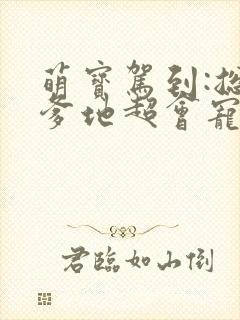 萌寶駕到:總
爹地超會寵
君臨如山倒